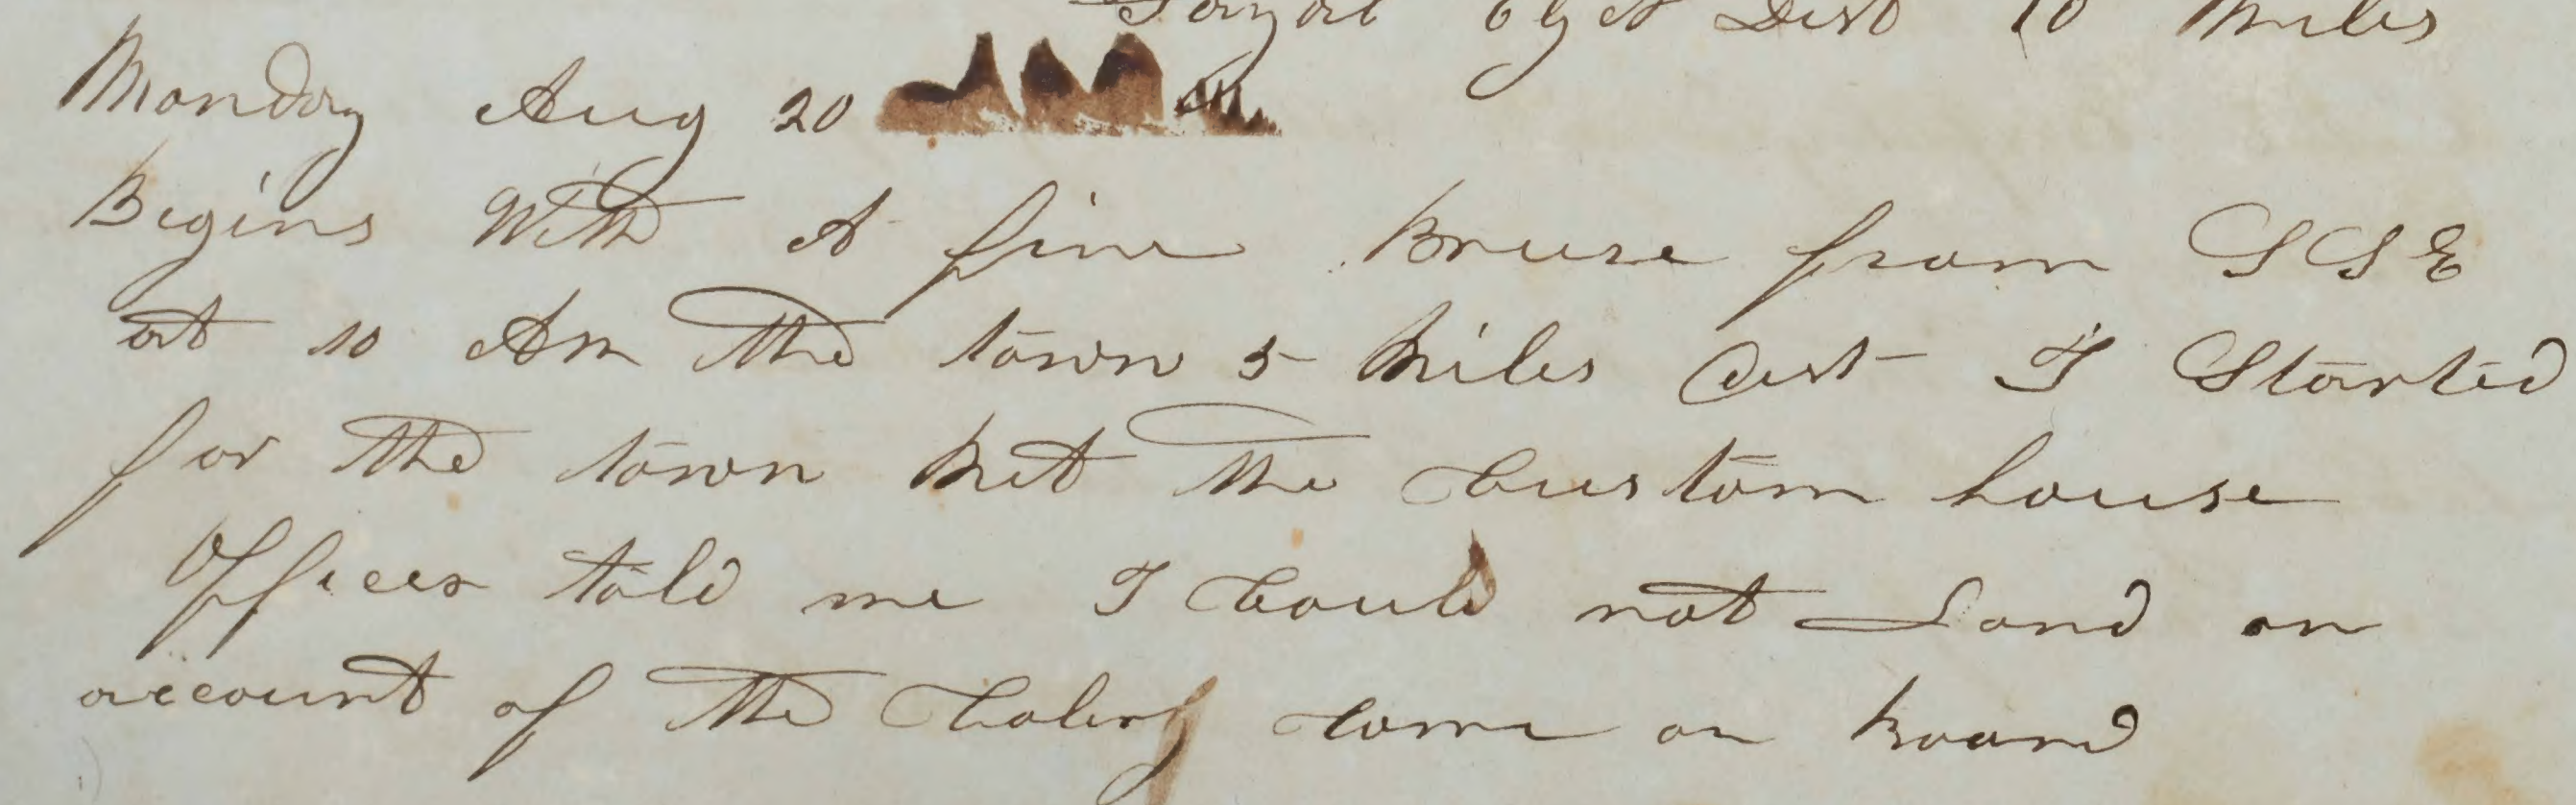 Fayal by N Dist 10 Miles
Monday Aug 20
Begins With A fine Breese from SSE
at 10 Am the town 5 Miles Dist I Started
for the town Met the Custom house
Officer told me I Could not Land on
account of the Colery Came on board